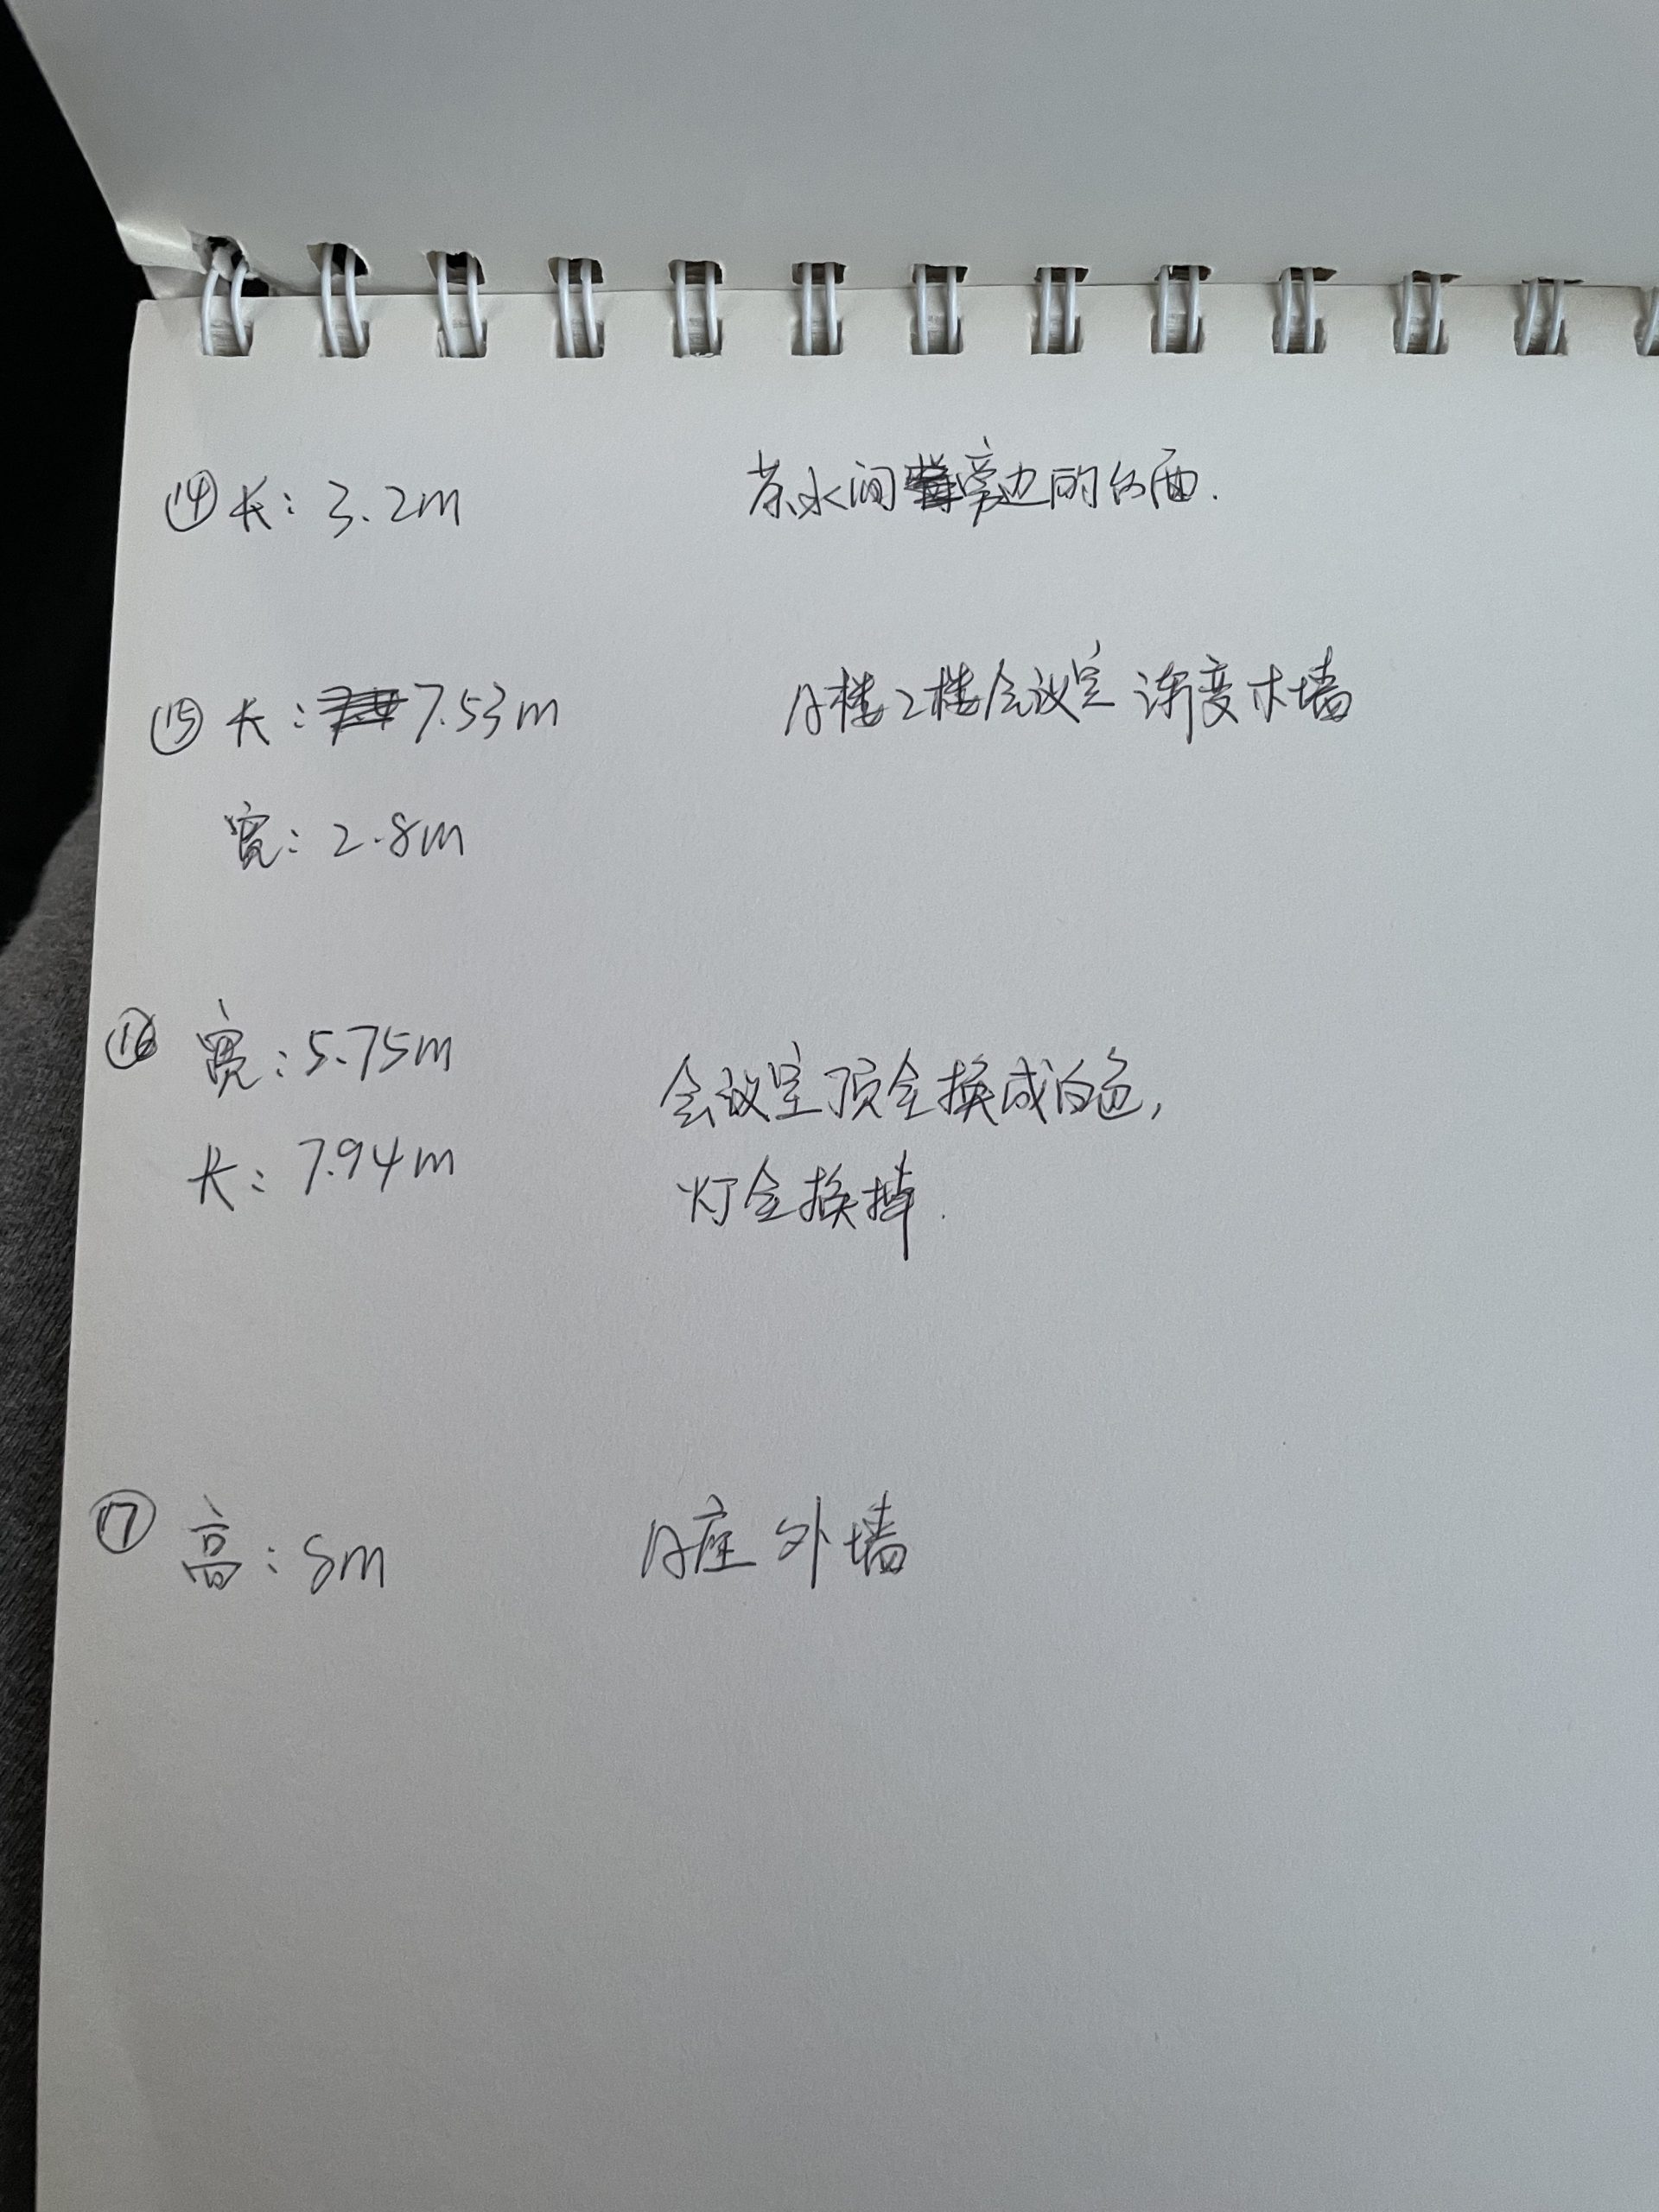 ⑭ 长：3.2m 茶水间旁边的台面.
⑮ 长：7.53m A楼2楼会议室 渐变木墙
宽：2.8m
⑯ 宽：5.75m 会议室顶全换成白色，
长：7.94m 灯全换掉.
⑰ 高：8m A座 外墙